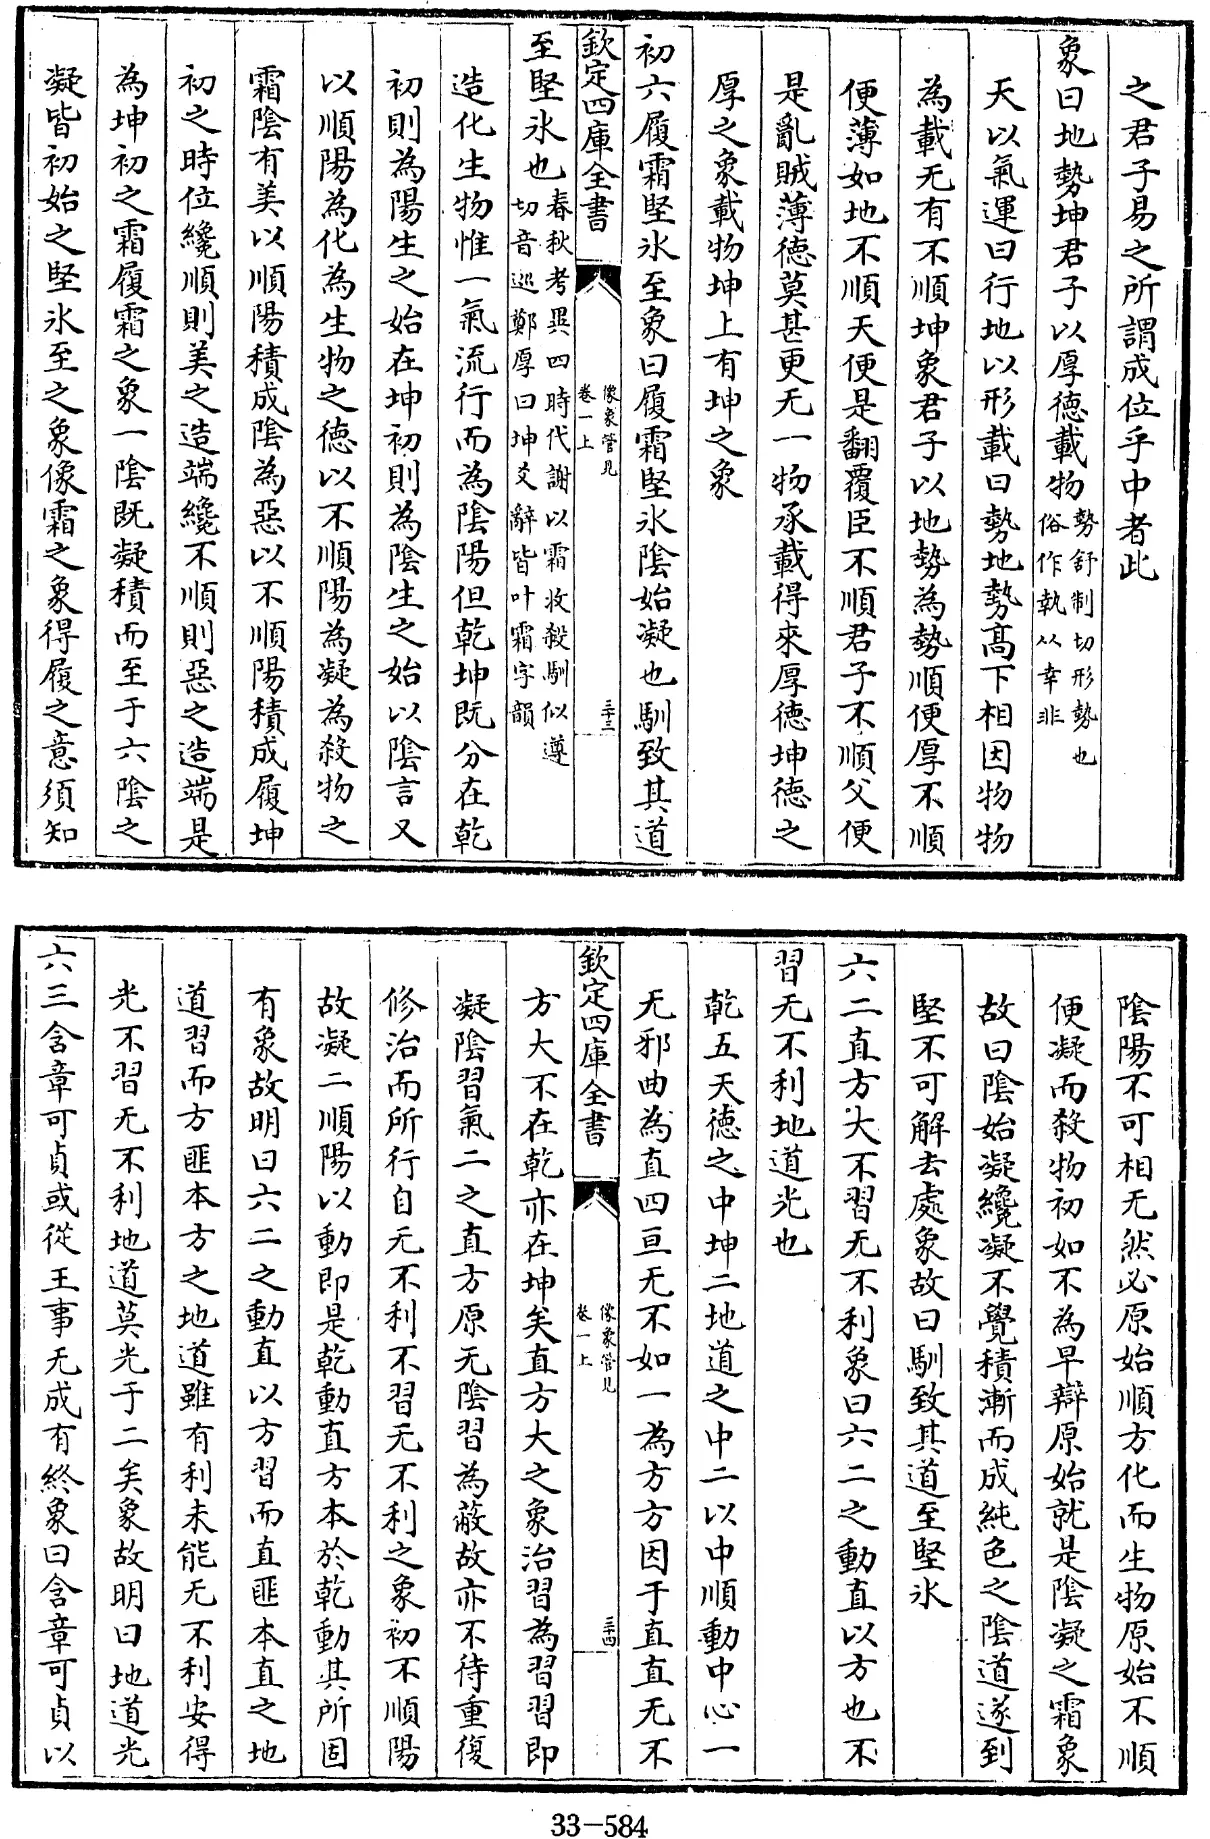 之君子易之所謂成位乎中者此
象曰地勢坤君子以厚德載物勢舒制切形勢也俗作𫝑从幸非
天以氣運曰行地以形載曰勢地勢高下相因物物
為載无有不順坤象君子以地勢為勢順便厚不順
便薄如地不順天便是翻覆臣不順君子不順父便
是亂賊薄德莫甚更无一物承載得來厚德坤德之
厚之象載物坤上有坤之象
初六履霜堅氷至象曰履霜堅氷陰始凝也馴致其道
欽定四庫全書
像象管見
卷一上
三十三
至堅氷也春秋考異四時代謝以霜收殺馴似遵切音巡鄭厚曰坤爻辭皆叶霜字韻
造化生物惟一氣流行而為陰陽但乾坤既分在乾
初則為陽生之始在坤初則為陰生之始以陰言又
以順陽為化為生物之德以不順陽為凝為殺物之
霜陰有美以順陽積成陰為惡以不順陽積成履坤
初之時位纔順則美之造端纔不順則惡之造端是
為坤初之霜履霜之象一陰既凝積而至于六陰之
凝皆初始之堅氷至之象像霜之象得履之意須知
陰陽不可相无然必原始順方化而生物原始不順
便凝而殺物初如不為早辯原始就是陰凝之霜象
故曰陰始凝纔凝不覺積漸而成純色之陰道遂到
堅不可解去處象故曰馴致其道至堅氷
六二直方大不習无不利象曰六二之動直以方也不
習无不利地道光也
乾五天德之中坤二地道之中二以中順動中心一
无邪曲為直四亘无不如一為方方因于直直无不
欽定四庫全書
像象管見
卷一上
三十四
方大不在乾亦在坤矣直方大之象治習為習習即
凝陰習氣二之直方原无陰習為蔽故亦不待重復
修治而所行自无不利不習无不利之象初不順陽
故凝二順陽以動即是乾動直方本於乾動其所固
有象故明曰六二之動直以方習而直匪本直之地
道習而方匪本方之地道雖有利未能无不利安得
光不習无不利地道莫光于二矣象故明曰地道光
六三含章可貞或從王事无成有終象曰含章可貞以
33-584